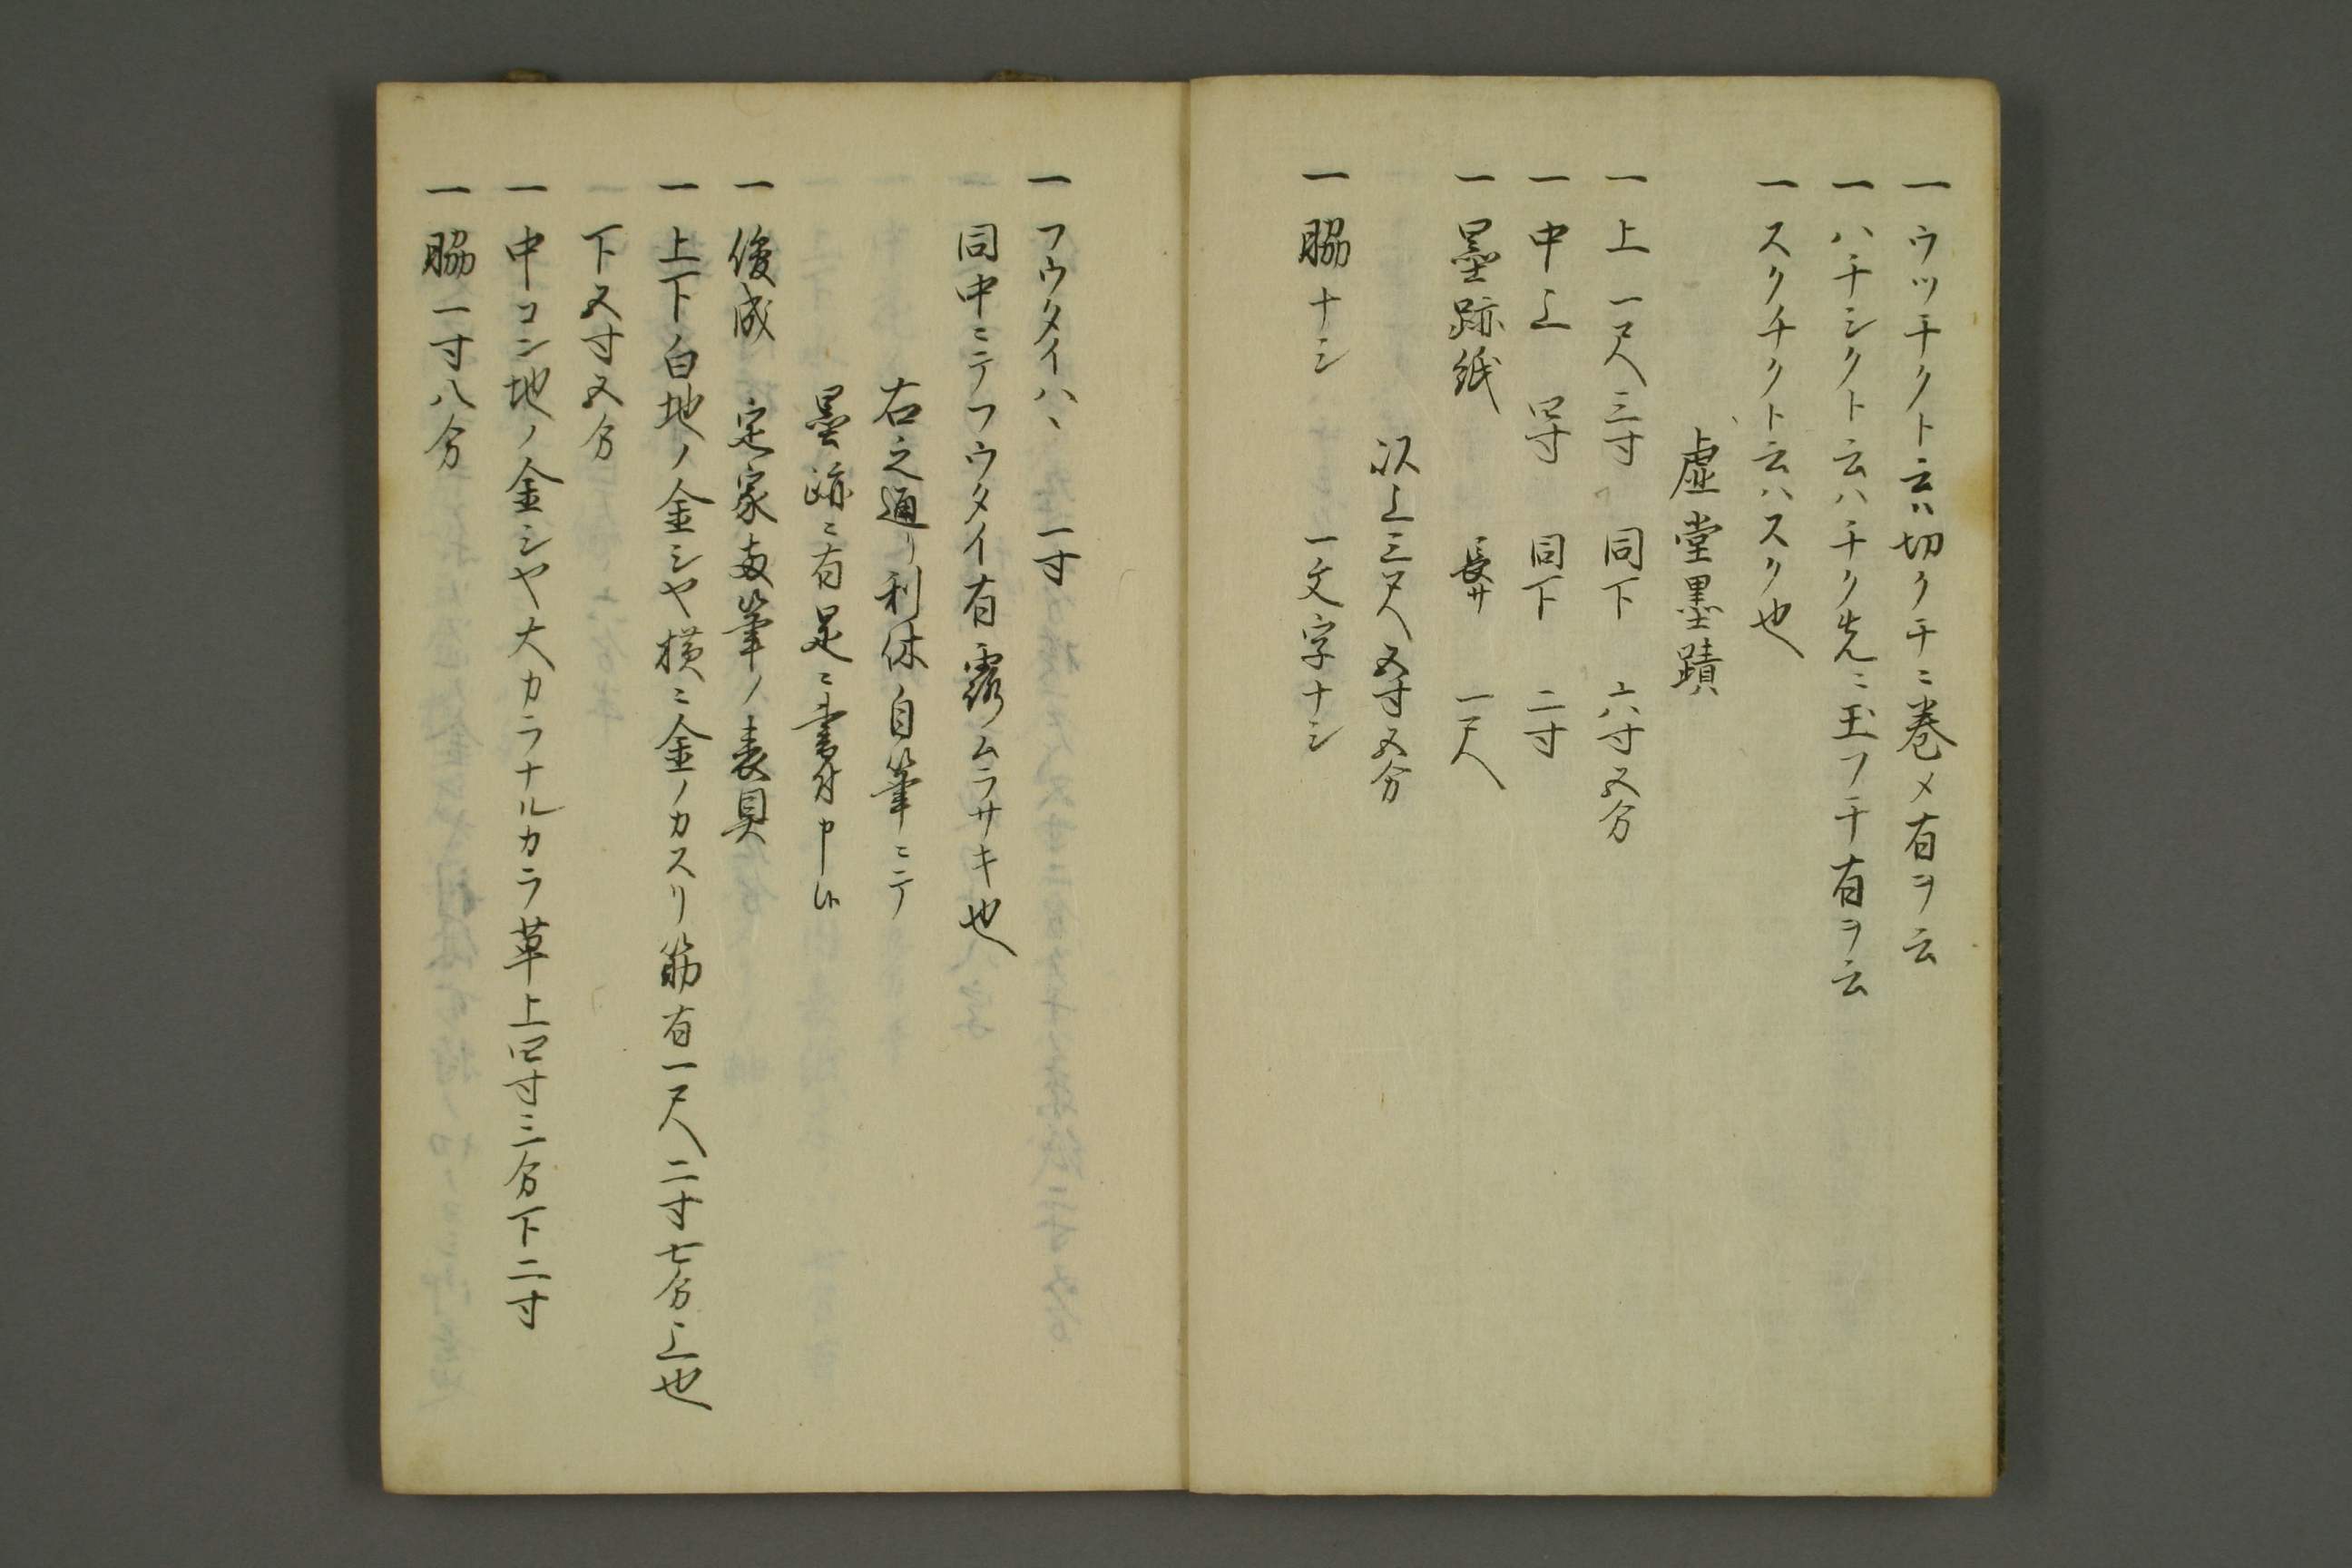 一 ウツチクト云ハ切クチニ巻メ有ヲ云
一 ハチシクト云ハチク先ニ玉フチ有ヲ云
一 スクチクト云ハスク也
虚堂墨蹟
一 上 一尺三寸 同下 六寸五分
一 中上 四寸 同下 二寸
一 墨跡紙 長サ 一尺
以上三尺五寸五分
一 脇ナシ 一文字ナシ
一 フウタイハ、 一寸
同中ニテフウタイ有露ムラサキ也
右之通リ利休自筆ニテ
墨跡ニ有足ニ書付申候
一 俊成 定家両筆ノ表具
一 上下白地ノ金シヤ横ニ金ノカスリ筋有一尺二寸七分上也
下五寸五分
一 中コン地ノ金シヤ大カラナルカラ草上四寸三分下二寸
一 脇一寸八分